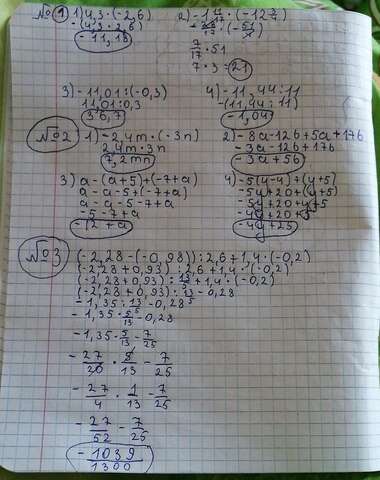 №1 1) 4,3 · (-2,6)
-(4,3 · 2,6)
-11,18
2) -1 7/17 · (-12 3/4)
7/17 · 51
7 · 3 = 21
3) -11,01 : (-0,3)
11,01 : 0,3
36,7
4) -11,44 : 11
-(11,44 : 11)
-1,04
№2 1) -2,4m · (-3n)
2,4m · 3n
7,2mn
2) -8a-12б+5a+17б
-3a-12б+17б
-3a+5б
3) a-(a+5)+(-7+a)
a-a-5+(-7+a)
a-a-5-7+a
-5-7+a
-12+a
4) -5(y-4)+(y+5)
-5y+20+(y+5)
-5y+20+y+5
-4y+20+5
-4y+25
№3 (-2,28-(-0,98)) : 2,6+1,4 · (-0,2)
(-2,28+0,93) : 2,6+1,4 · (-0,2)
(-2,28+0,93) : 13/5+1,4 · (-0,2)
(-2,28+0,93) : 13/5-0,28
-1,35 : 13/5-0,28
-1,35 · 5/13-0,28
-1,35 · 5/13-7/25
-27/20 · 5/13-7/25
-27/4 · 1/13-7/25
-27/52-7/25
-1039/1300